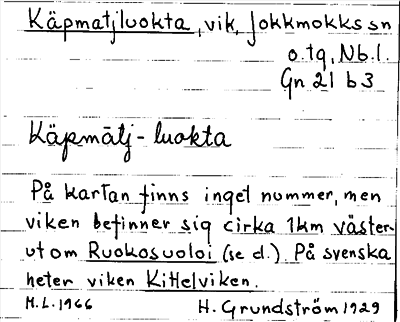 Käpmatjluokta, vik, Jokkmokks sn
o. tg, Nb. l.
Gn 21 b 3
Käpmātj-luokta
På kartan finns inget nummer, men
viken befinner sig cirka 1km väster-
ut om Ruokosuoloi (se d.) På svenska
heter viken Kittelviken.
M.L. 1966 H. Grundström 1929